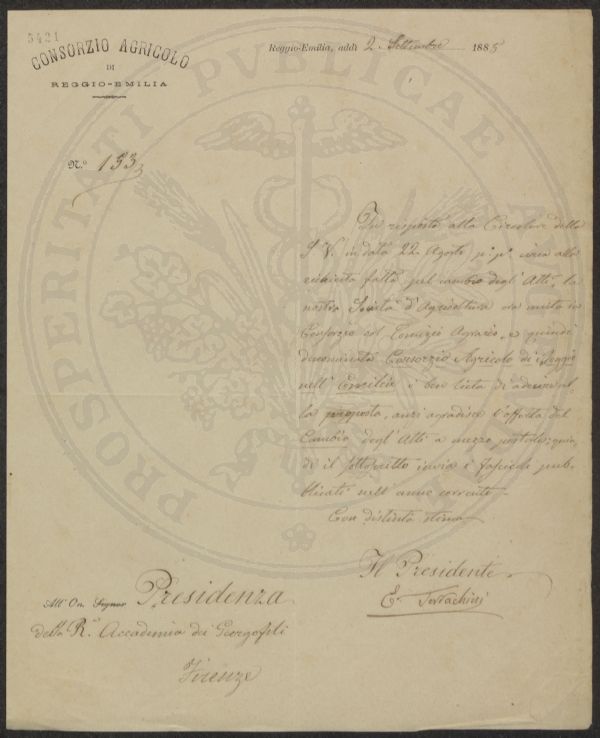 5421
CONSORZIO AGRICOLO
DI
REGGIO-EMILIA
Reggio-Emilia, addì 2 Settembre 1885
N.º 153
In risposta alla Circolare della
S. V. in data 22 Agosto p.º p.º circa alla
richiesta fatta pel cambio degli Atti, la
nostra Società d'Agricoltura ora unita in
Consorzio col Comizio Agrario, e quindi
denominata Consorzio Agricolo di Reggio
nell' Emilia è ben lieta di aderire al
la proposta, anzi agradisce l'offerta del
Cambio degli Atti a mezzo postale; quin
di il sottoscritto invia i fascicoli pub-
blicati nell' anno corrente.
Con distinta stima
Il Presidente
E.
All' On. Signor Presidenza
della R.ª Accademia dei Georgofili
Firenze
PROSPERITATI PVBLICAE